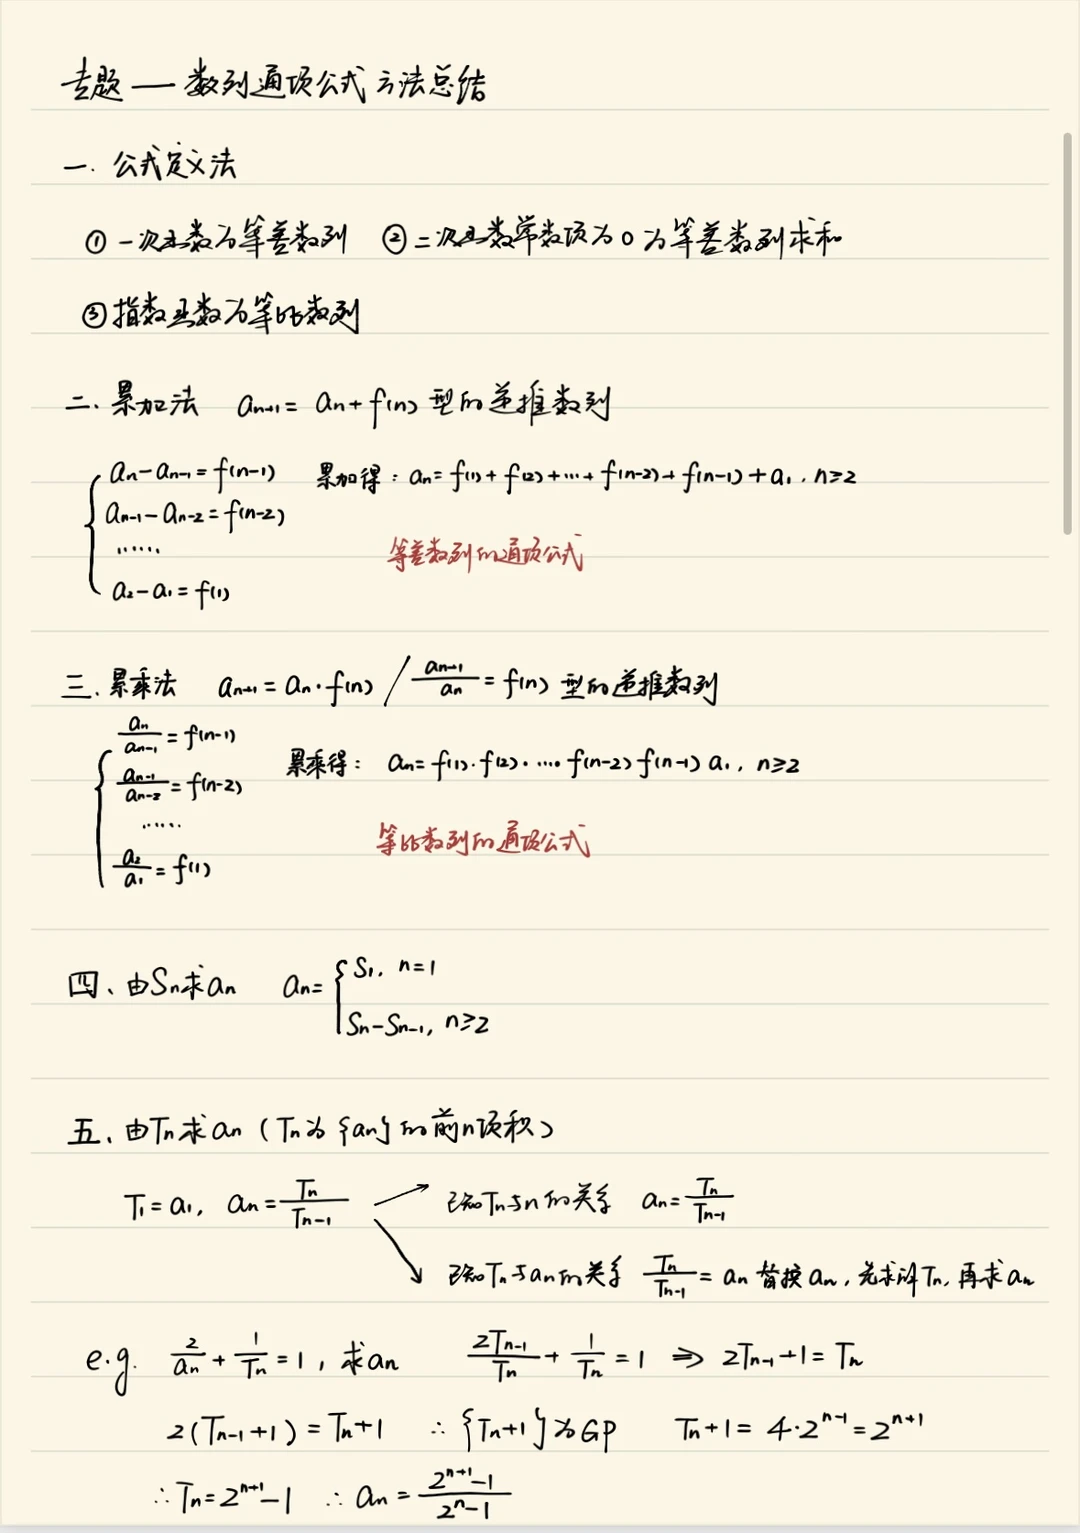 专题 — 数列通项公式方法总结
一. 公式定义法
① 一次函数为等差数列 ② 二次函数常数项为0为等差数列求和
③ 指数函数为等比数列
二、累加法 aₙ₊₁ = aₙ + f(n) 型的递推数列
aₙ - aₙ₋₁ = f(n-1) 累加得：aₙ = f(1) + f(2) + … + f(n-2) + f(n-1) + a₁, n≥2
aₙ₋₁ - aₙ₋₂ = f(n-2)
……
等差数列的通项公式
a₂ - a₁ = f(1)
三、累乘法 aₙ₊₁ = aₙ · f(n) / aₙ₊₁/aₙ = f(n) 型的递推数列
aₙ/aₙ₋₁ = f(n-1)
累乘得： aₙ = f(1) · f(2) · … f(n-2) f(n-1) a₁, n≥2
aₙ₋₁/aₙ₋₂ = f(n-2)
……
等比数列的通项公式
a₂/a₁ = f(1)
四、由Sₙ求aₙ aₙ = { S₁, n=1
Sₙ - Sₙ₋₁, n≥2
五、由Tₙ求aₙ (Tₙ为{aₙ}的前n项积)
T₁ = a₁, aₙ = Tₙ/Tₙ₋₁ → 已知Tₙ与n的关系 aₙ = Tₙ/Tₙ₋₁
↘ 已知Tₙ与aₙ的关系 Tₙ/Tₙ₋₁ = aₙ 替换aₙ, 先求的Tₙ, 再求aₙ
e.g. 2/aₙ + 1/Tₙ = 1, 求aₙ 2Tₙ₋₁/Tₙ + 1/Tₙ = 1 ⇒ 2Tₙ₋₁ + 1 = Tₙ
2(Tₙ₋₁ + 1) = Tₙ + 1 ∴ {Tₙ+1}为GP Tₙ + 1 = 4·2ⁿ⁻¹ = 2ⁿ⁺¹
∴ Tₙ = 2ⁿ⁺¹ - 1 ∴ aₙ = (2ⁿ⁺¹ - 1)/(2ⁿ - 1)